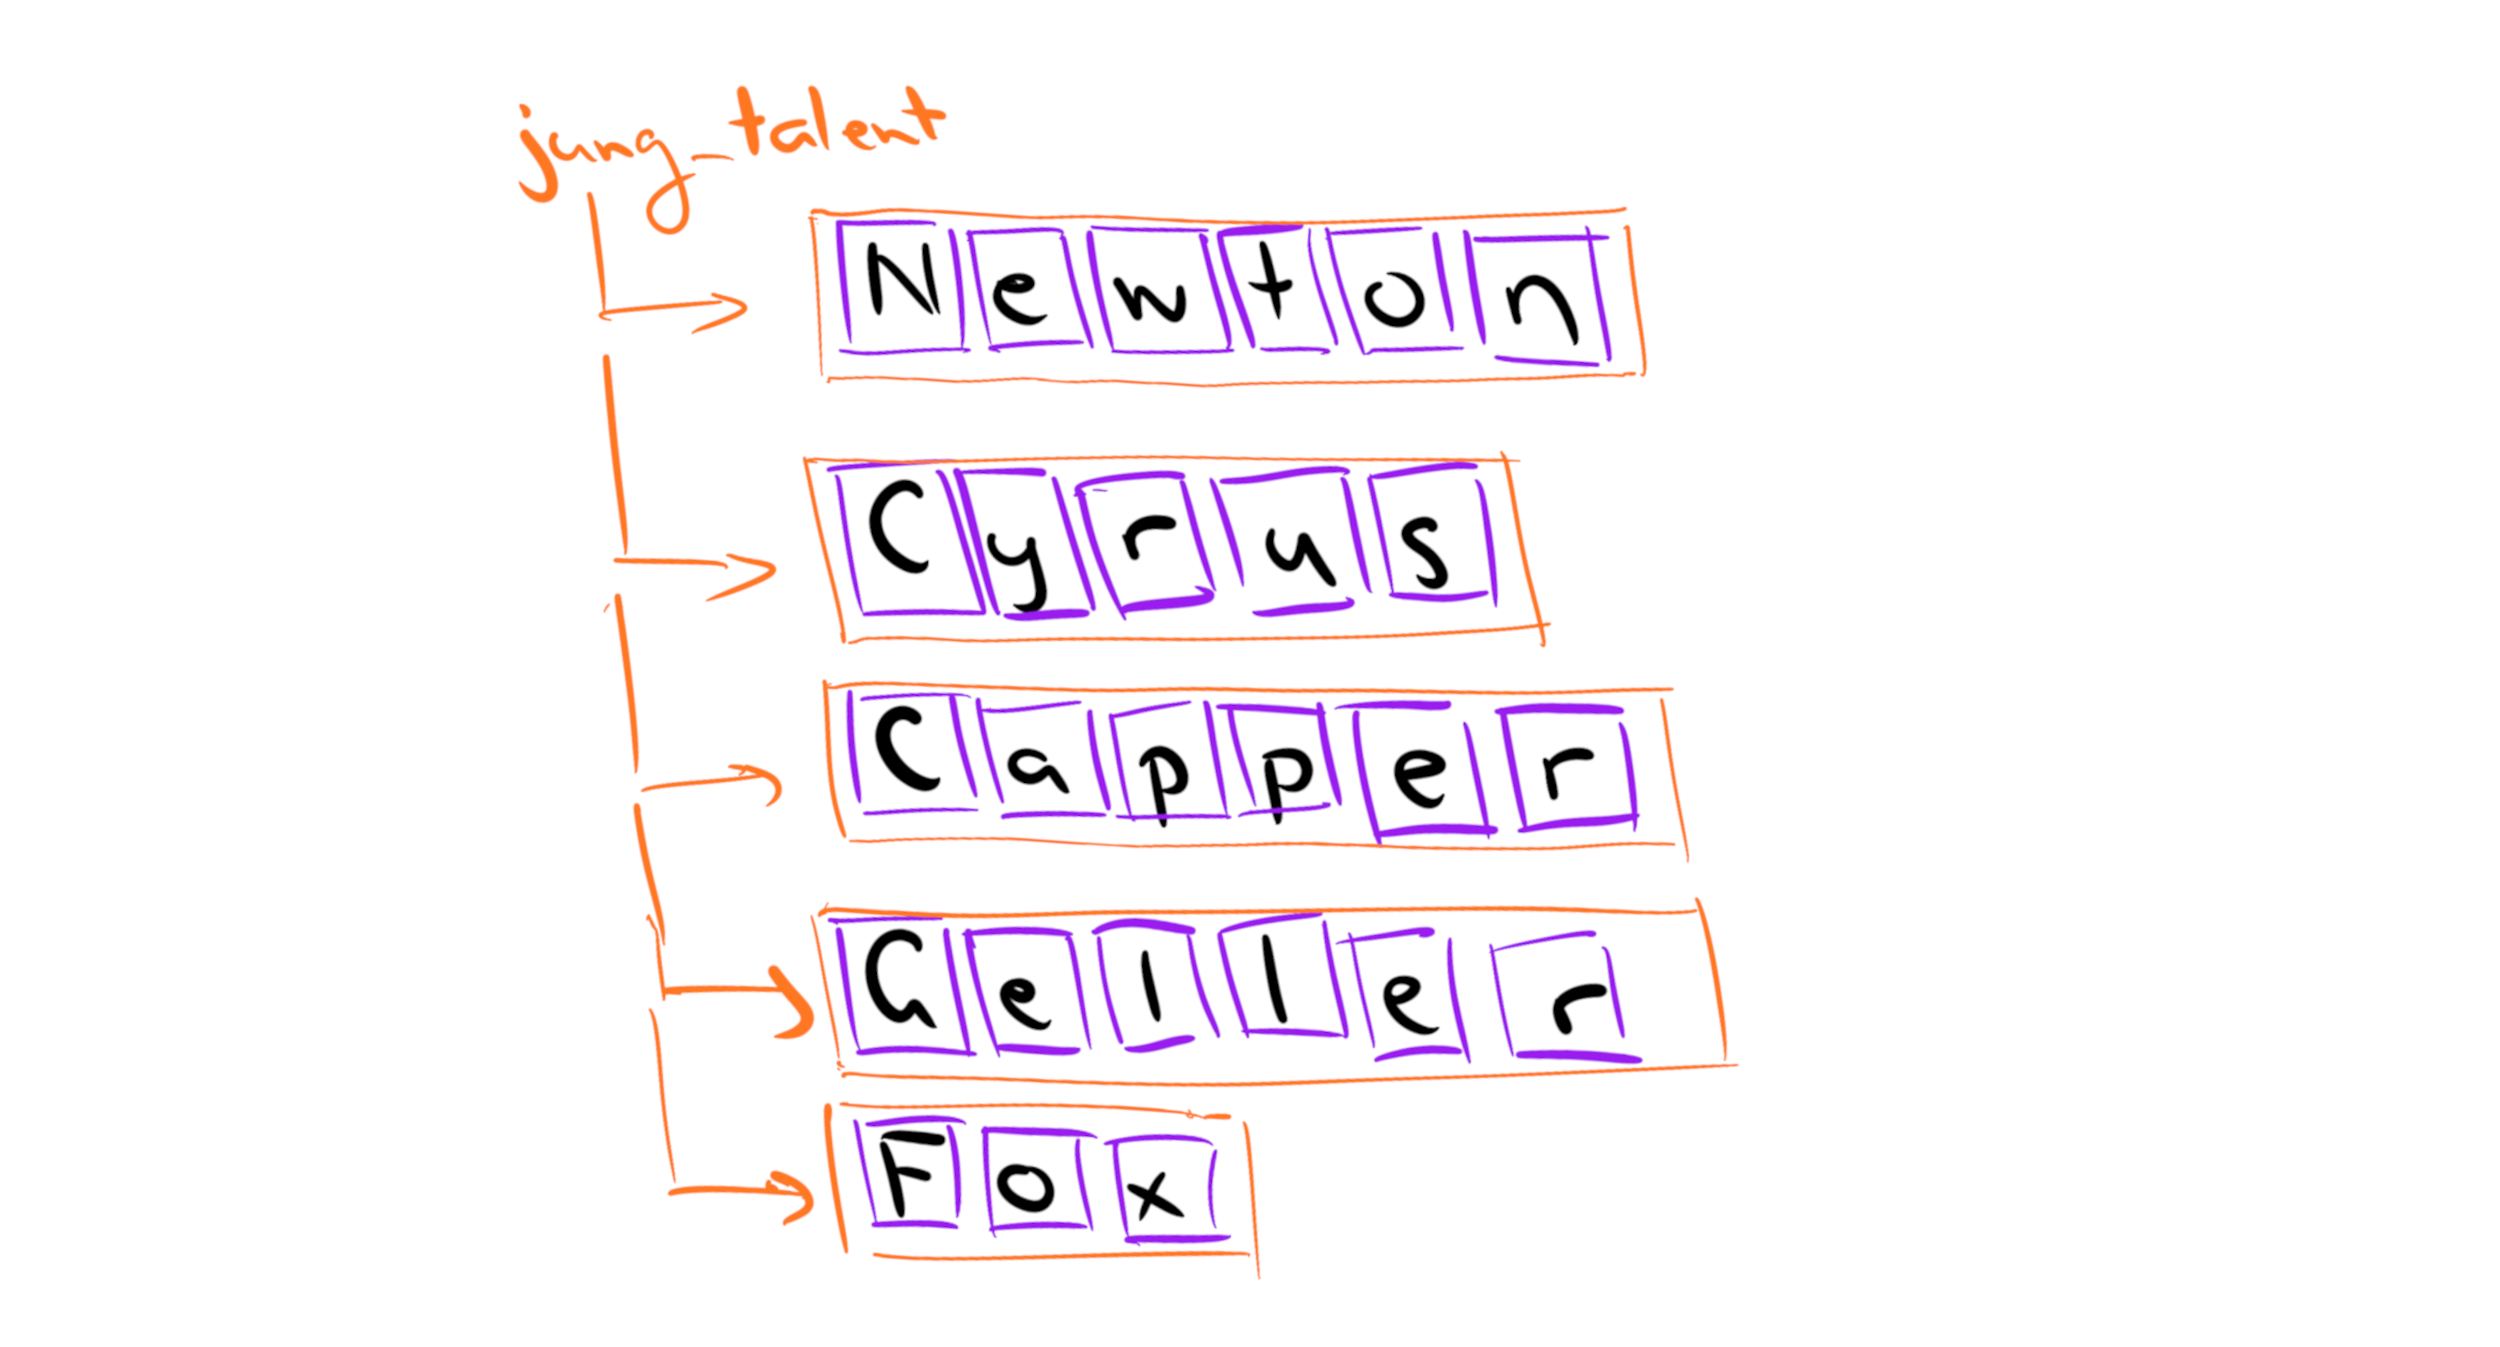 jung_talent
Newton
Cyrus
Capper
Geller
Fox